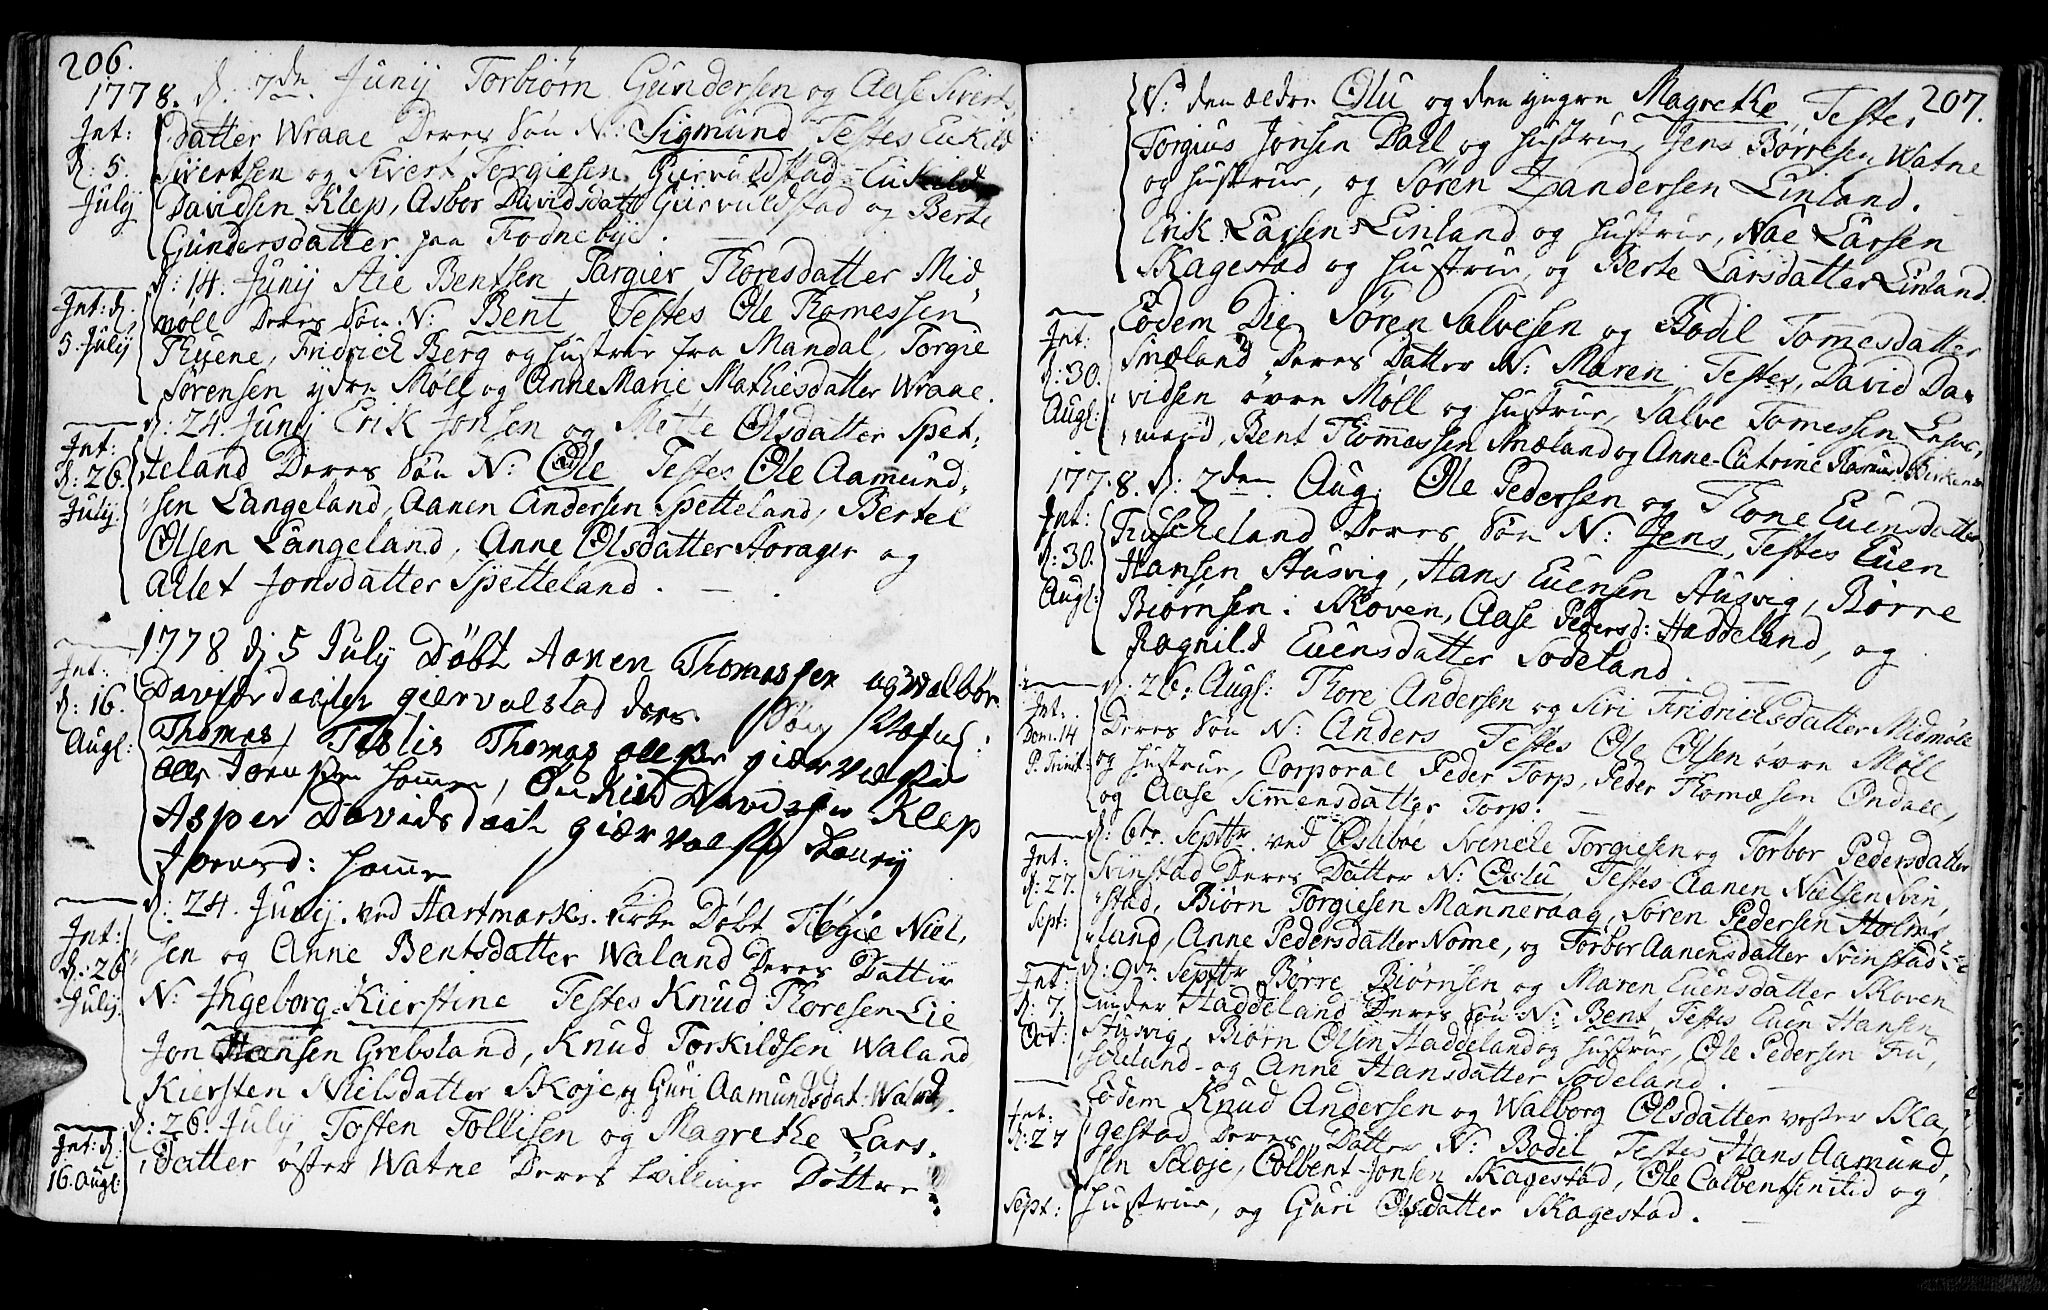 206.
1778. d. 7de Junij Torbiørn Gundersen og Aase Siverts
Int: datter Wraae Deres Søn N: Sigmund Testes Eukild
d: 5. Sivertsen og Sivert Torgiesen Giervuldstad, Eukild
July Davidsen Klep, Asbor Davidsdatt Giervuldstad og Berte
Gundersdatter paa Fodnebye.
d: 14. Junij Aie Bentsen Targier Thoresdatter Mid
Int: d. møll Deres Søn N: Bent Testes Ole Thomessen
5. July Thuene, Fridrich Berg og Hustrue fra Mandal, Torgie
Sørensen ydre Møll og Anne Marie Mathiesdatter Wraae.
d: 24. Junij Erik Jonsen og Mette Olsdatter Spet,
Int: teland Deres Søn N: Ole Testes Ole Aamund,
d: 26. sen Langeland, Aanen Andersen Spetteland, Bertel
July: Olsen Langeland, Anne Olsdatter Horager og
Allet Jonsdatter Spetteland.
1778 d 5 July Døbt Aanen Thomassen og Walbor
Int: Davidsdaatter giervalstad ders Søn Nafnl:
d: 16. Thomas, Testis Thomas
Augl: olle
Asper Davidsdaat giervalst
d: 24. Junij. ved Hartmarks Kirke Døbt Tløgie Niel,
Int: sen og Anne Bentsdatter Waland Deres Datter
d: 26 N: Ingeborg-Kierstine Testes Knud Thoresen Lie
July: Jon Hansen Grebsland, Knud Torkildsen Waland,
Kiersten Nielsdatter Skoje, og Guri Aamundsdat: Waland.
d: 26. July, Tosten Tollisen og Magrethe Lars.
Int: d: datter øster Watne Deres tvillinge Døttre
16. Augl:
207.
N: den ældre Olu og den yngre Magrethe, Testes
Torgius Jonsen Dall og Hustrue, Jens Børresen Watne
og Hustrue, og Søren Zandersen Linland.
Erik Larsen Linland og Hustrue, Aae Larsen
Skagestad og Hustrue, og Berte Larsdatter Linland.
Eodem Die Søren Salvesen og Bodil Tommesdatter
Int: Snæland Deres Datter N: Maren Testes, David Da,
d: 30. vidsen øvre Møll og Hustrue, Salve Tomessen
Augl: mand, Bent Thommassen Snæland og Anne-Catrine
1778. d: 2den Aug: Ole Pedersen og Thone Euensdatter
Int: Fuscheland Deres Søn N: Jens, Testes Euen
d: 30. Hansen Ausvig, Hans Euensen Ausvig, Børre
Augl: Biørnsen i Skoven, Aase Pedersd: Haddeland, og
Ragnild Euensdatter Sodeland.
d: 26: Augl: Thore Andersen og Siri Fridrichsdatter Midmøll
Int. Deres Søn N: Anders Testes Ole Olsen øvre Møll
Dom: 14 og Hustrue, Corporal Peder Torp, Peder Thomæsen Øndall,
P. Trinit: og Aase Simensdatter Torp.
d: 6te Septbr ved Øsleboe Svenele Torgiesen og Torbor Pedersdatter
Int: Svinstad Deres Datter N: Oslu, Testes Aanen Nielsen Svin,
d: 27. stad, Biørn Torgiesen Manneraag, Søren Pedersen Holme,
Sept: land, Anne Pedersdatter Nome, og Torbor Aanensdatter Svinstad
Int: d: 9de Septbr Børre Biørnsen og Maren Euensdatter Skoven
d: 7. under Haddeland Deres Søn N: Bent Testes Euen Hansen
Oct: Ausvig, Biørn Olsen Haddeland og Hustrue, Ole Pedersen Fu,
scheland og Anne Hansdatter Sodeland.
Eodem Knud Andersen og Walborg Olsdatter vester Ska,
Int: gestad Deres Datter N: Bodil Testes Hans Aamund,
d: 27 sen Schoje, Colbent Jonsen Skagestad, Ole Colbentsen ibid og
Sept: Hustrue, og Guri Olsdatter Skagestad.